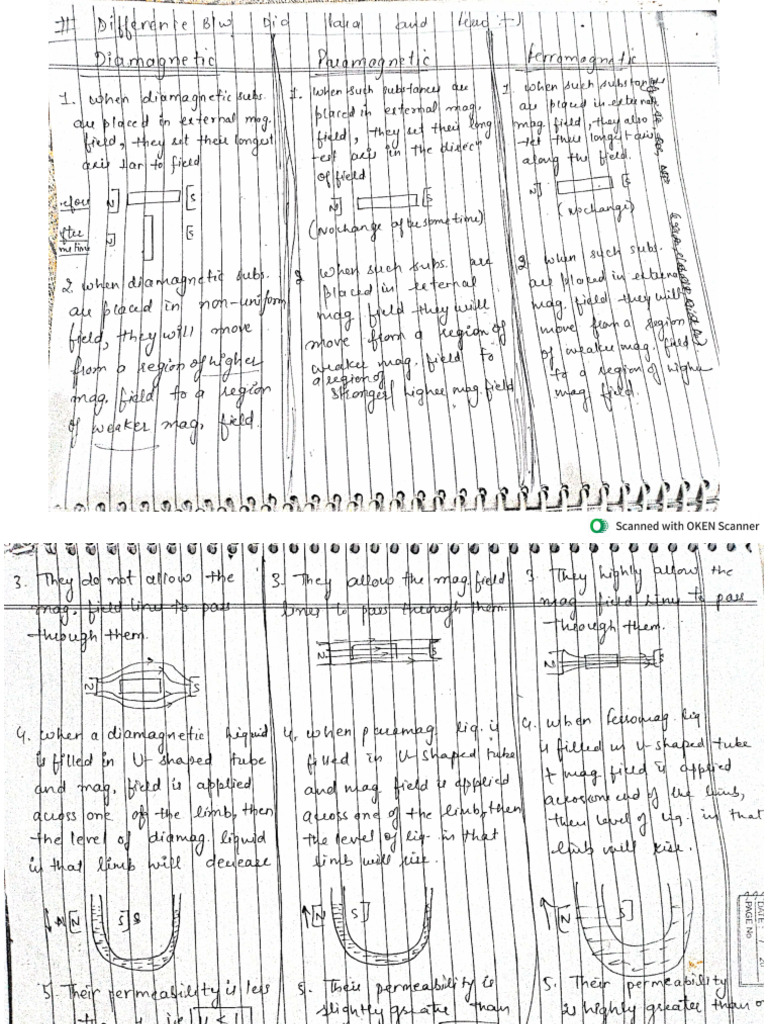 Difference B/w Dia Para and
Diamagnetic
1. when diamagnetic subs.
are placed in external mag.
field, they set their longest
axis ⊥ar to field
N S
N S
2 when diamagnetic subs.
are placed in non-uniform
field, they will move
from a region of higher
mag. field to a region
of weaker mag. field.
Paramagnetic
1. when such substances are
placed in external mag.
field, they set their long
-est axis in the direcn
of field
N S
(No change after sometime)
2 when such subs. are
placed in external
mag field they will
move from a region of
weaker mag. field to
a region of
stronger/ higher mag. field
Ferromagnetic
1. when such substances
are placed in external
mag field, they also
set their longest axis
along the field.
N S
(No change)
2 when such subs.
are placed in external
mag. field they will
move from a region
of weaker mag. field
to a region of higher
mag field.
Scanned with OKEN Scanner
3. They do not allow the
mag. field line to pass
through them.
N S
4. when a diamagnetic liquid
is filled in U-shaped tube
and mag. field is applied
across one of the limb, then
the level of diamag. liquid
in that limb will decrease
N S
5. Their permeability is less
3. They allow the mag field
lines to pass through them.
N S
4. when paramag liq. is
filled in U shaped tube
and mag field is applied
across one of the limb, then
the level of liq. in that
limb will rise.
N S
5. Their permeability is
slightly greater than
3. They highly allow the
mag field line to pass
through them.
N S
4. when ferromag. liq
is filled in U-shaped tube
+ mag field is applied
across one end of the limb,
then level of liq. in that
limb will rise.
N S
5. Their permeability
is highly greater than
DATE: /
PAGE No